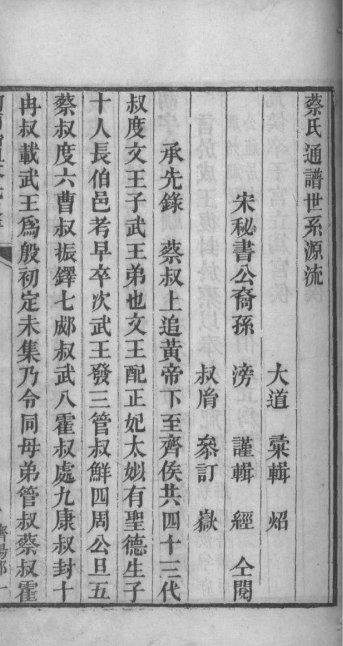 蔡氏通譜世系源流
大道　彚輯　炤
宋秘書公裔孫　滂　謹輯　經　仝閱
叔脋　叅訂　嶽
承先錄　蔡叔上追黃帝下至齊侯共四十三代
叔度文王子武王弟也文王配正妃太姒有聖德生子
十人長伯邑考早卒次武王發三管叔鮮四周公旦五
蔡叔度六曹叔振鐸七郕叔武八霍叔處九康叔封十
冉叔載武王爲殷初定未集乃令同母弟管叔蔡叔霍
濟陽郡
一